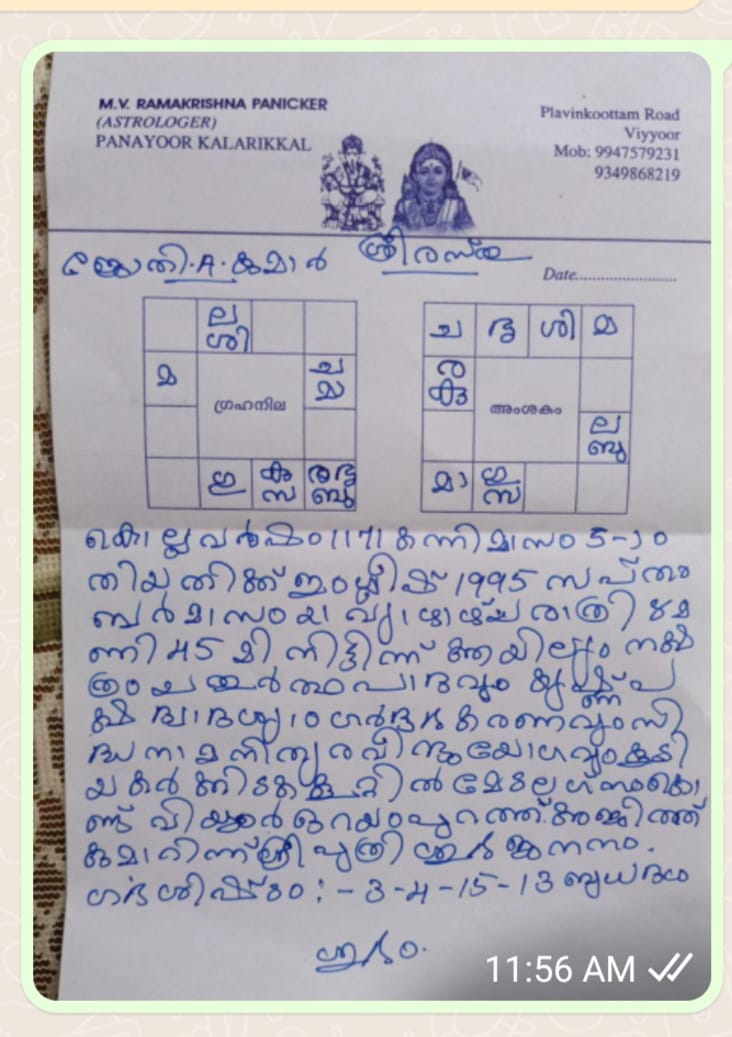 M.V. RAMAKRISHNA PANICKER
(ASTROLOGER)
PANAYOOR KALARIKKAL
Plavinkoottam Road
Viyyoor
Mob: 9947579231
9349868219
ജ്യോതി.A.കുമാർ ശ്രീരസ്തു
Date........................
ല
ശി
മ
ച
മ
ഗ്രഹനില
ഗു
കു
സ
ര
ബു
ച
ശി
മ
ര
കു
അംശകം
ല
ബു
മാ
ഗു
സ
കൊല്ലവർഷം 1171 കന്നിമാസം 5-ാം
തിയതിക്ക് ഇംഗ്ലീഷ് 1995 സപ്തം
ബർമാസം വ്യാഴാഴ്ച രാത്രി 8 മ
ണി 45 മിനിട്ടിന് ആയില്യം നക്ഷ
ത്രം ചതുർത്ഥപാദവും കൃഷ്ണപ
ക്ഷ ദ്വാദശ്യാം കരണവും സി
ദ്ധനാമനിത്യ യോഗവും കൂടി
യ കർക്കിടകകൂറിൽ മേടലഗ്നംകൊ
ണ്ട് വിയ്യൂർ പുറത്ത് അജിത്ത്
കുമാറിന്ന് പുത്രി ജനനം.
ഗർഭശിഷ്ടം :- 3-4-15-13 ബുധദശ
ശുഭം.
11:56 AM